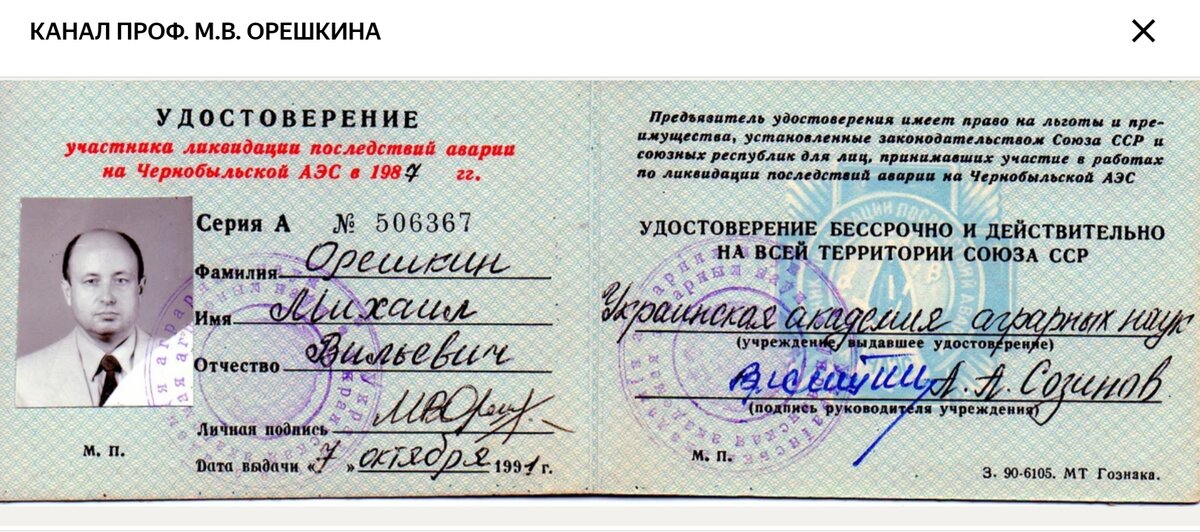 КАНАЛ ПРОФ. М.В. ОРЕШКИНА
УДОСТОВЕРЕНИЕ
участника ликвидации последствий аварии
на Чернобыльской АЭС в 1987 гг.
Серия А № 506367
Фамилия Орешкин
Имя Михаил
Отчество Вильевич
Личная подпись
М. П.
Дата выдачи «7» октября 1991 г.
Предъявитель удостоверения имеет право на льготы и пре-
имущества, установленные законодательством Союза ССР и
союзных республик для лиц, принимавших участие в работах
по ликвидации последствий аварии на Чернобыльской АЭС
УДОСТОВЕРЕНИЕ БЕССРОЧНО И ДЕЙСТВИТЕЛЬНО
НА ВСЕЙ ТЕРРИТОРИИ СОЮЗА ССР
Украинская академия аграрных наук
(учреждение, выдавшее удостоверение)
А. А. Созинов
(подпись руководителя учреждения)
М. П.
З. 90-6105. МТ Гознака.